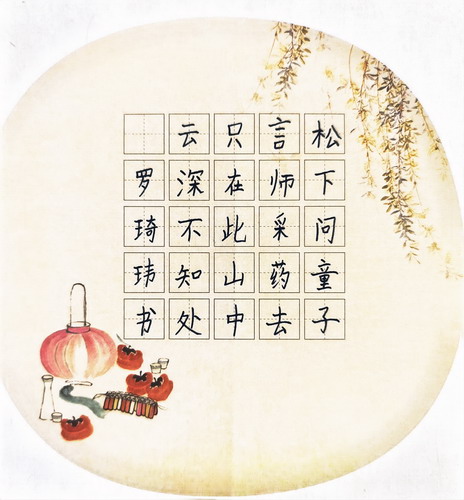 松下问童子
言师采药去
只在此山中
云深不知处
罗琦玮书